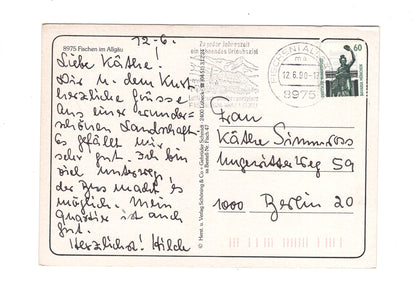 12-6.
8975 Fischen im Allgäu
Liebe Käthe!
Dir u. dem Kurt
herzliche Grüsse
aus einer wunder-
schönen Landschaft.
Es gefällt mir
sehr gut. Ich bin
viel unterwegs
der Bus macht es
möglich. Mein
Quartier ist auch
gut.
Herzlichst! Hilde
© Horst u. Verlag Schöning & Co + Gebrüder Schmidt · 2400 Lübeck
Zu jeder Jahreszeit
FISCHEN I ALLGÄU
12.6.90-17
8975
60
Frau
Käthe Simmross
Ungaritter Weg 59
1000 Berlin 20